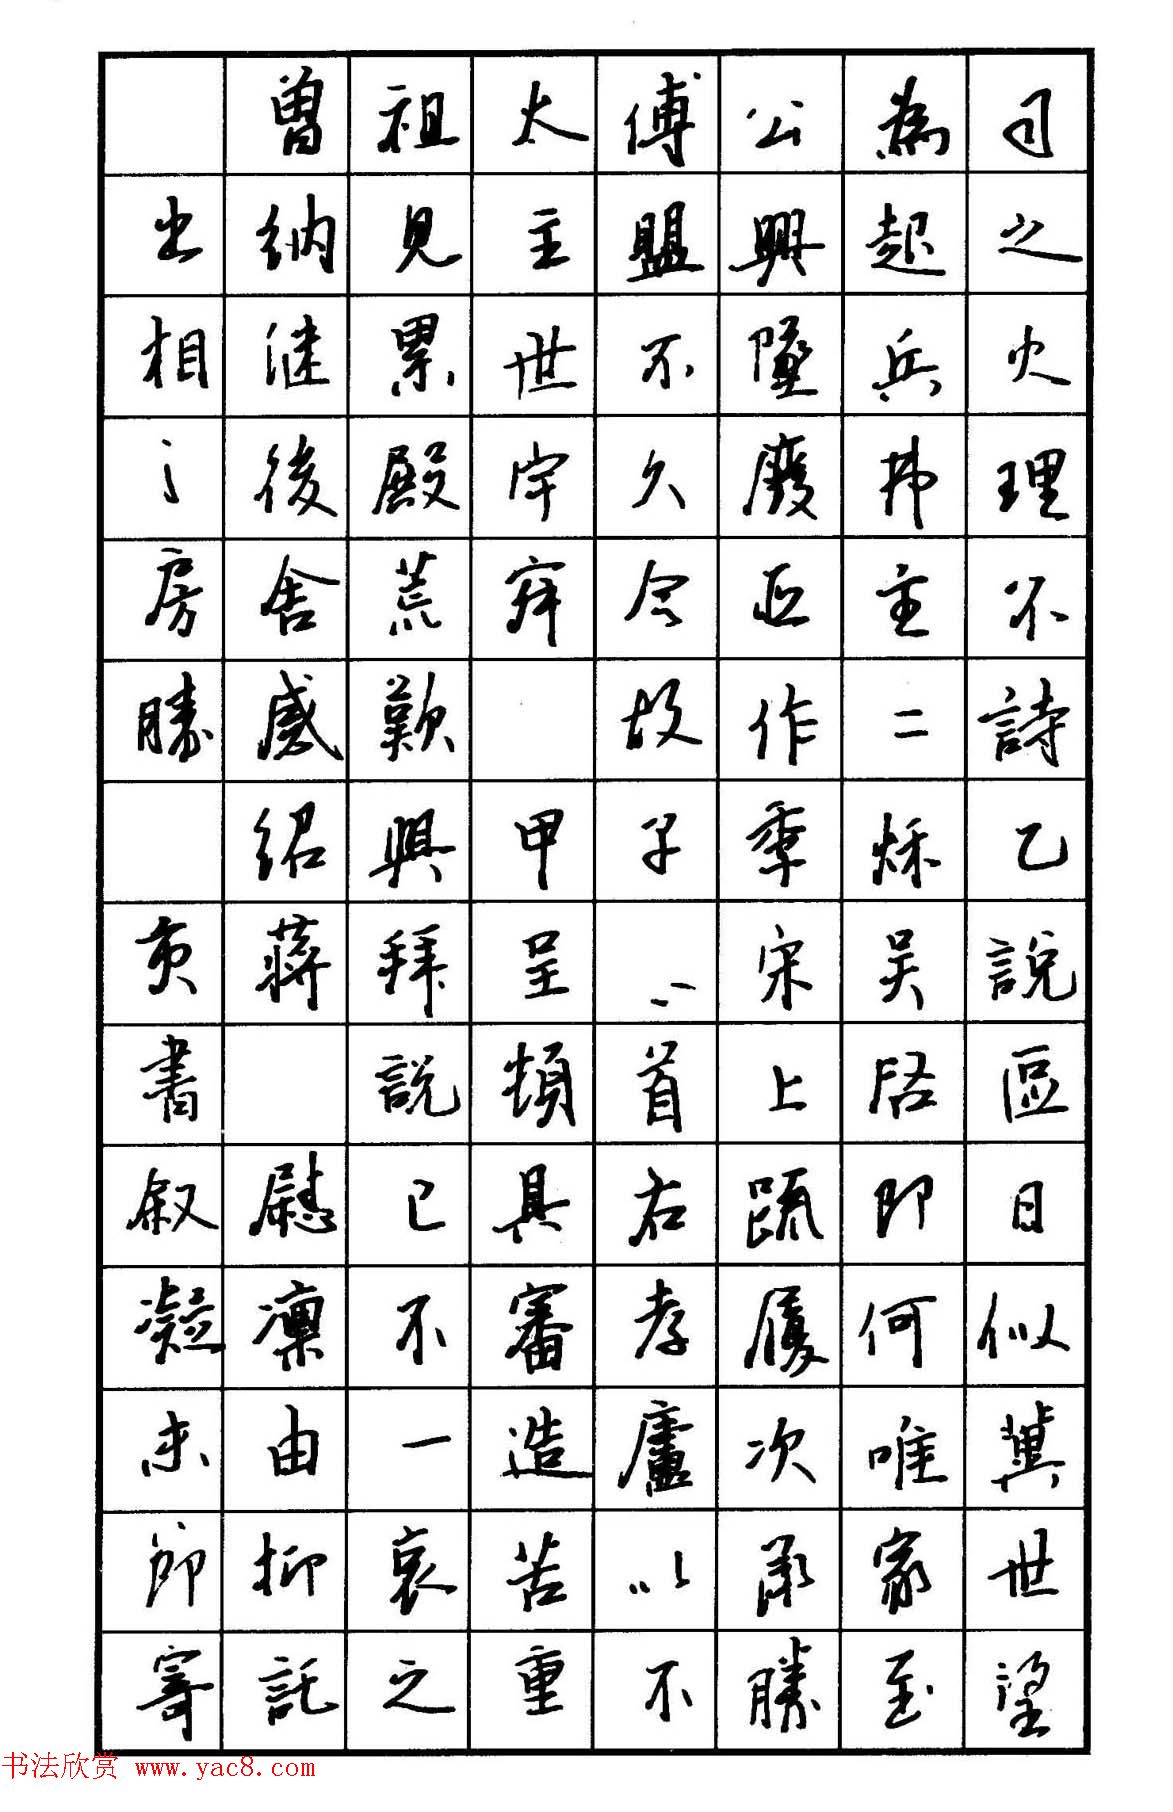 曾祖太傅公為司
出納見主盟興起之
相繼累世不墜兵火
之後殿宇久廢弗理
房舍荒主不
勝感歎故作二詩
紹興甲子季秌乙
亥蔣拜呈宋吳說
書說頓首上啓區
叙慰已具右疏即日
凝凜不審孝履何似
未由一造廬次唯冀
節抑哀苦以承家世
寄託之重不勝至望
书法欣赏 www.yac8.com